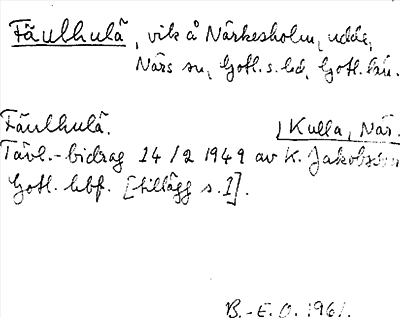 Fäulhulä, vik å Närkesholm, udde,
Närs sn, Gotl. s. hd, Gotl. län.
Fäulhulä.
Kulla, När.
Tävl.-bidrag 14/2 1949 av K. Jakobsson
Gotl. hbf. [tillägg s. 1].
B.-E. O. 1961.